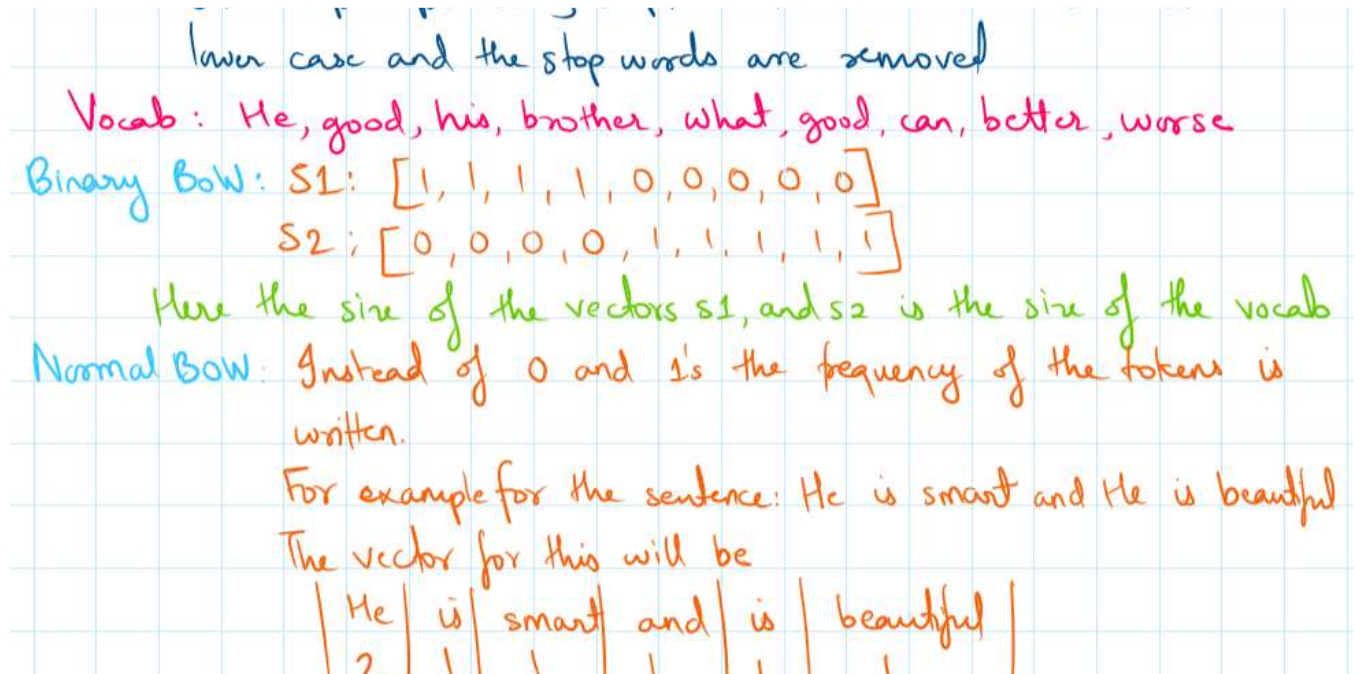 lower case and the stop words are removed
Vocab: He, good, his, brother, what, good, can, better, worse
Binary BoW: S1: [1, 1, 1, 1, 0, 0, 0, 0, 0]
S2: [0, 0, 0, 0, 1, 1, 1, 1, 1]
Here the size of the vectors s1, and s2 is the size of the vocab
Normal BoW: Instead of 0 and 1's the frequency of the tokens is
written.
For example for the sentence: He is smart and He is beautiful
The vector for this will be
| He | is | smart | and | is | beautiful |
| 2 | 1 | 1 | 1 | 1 | 1